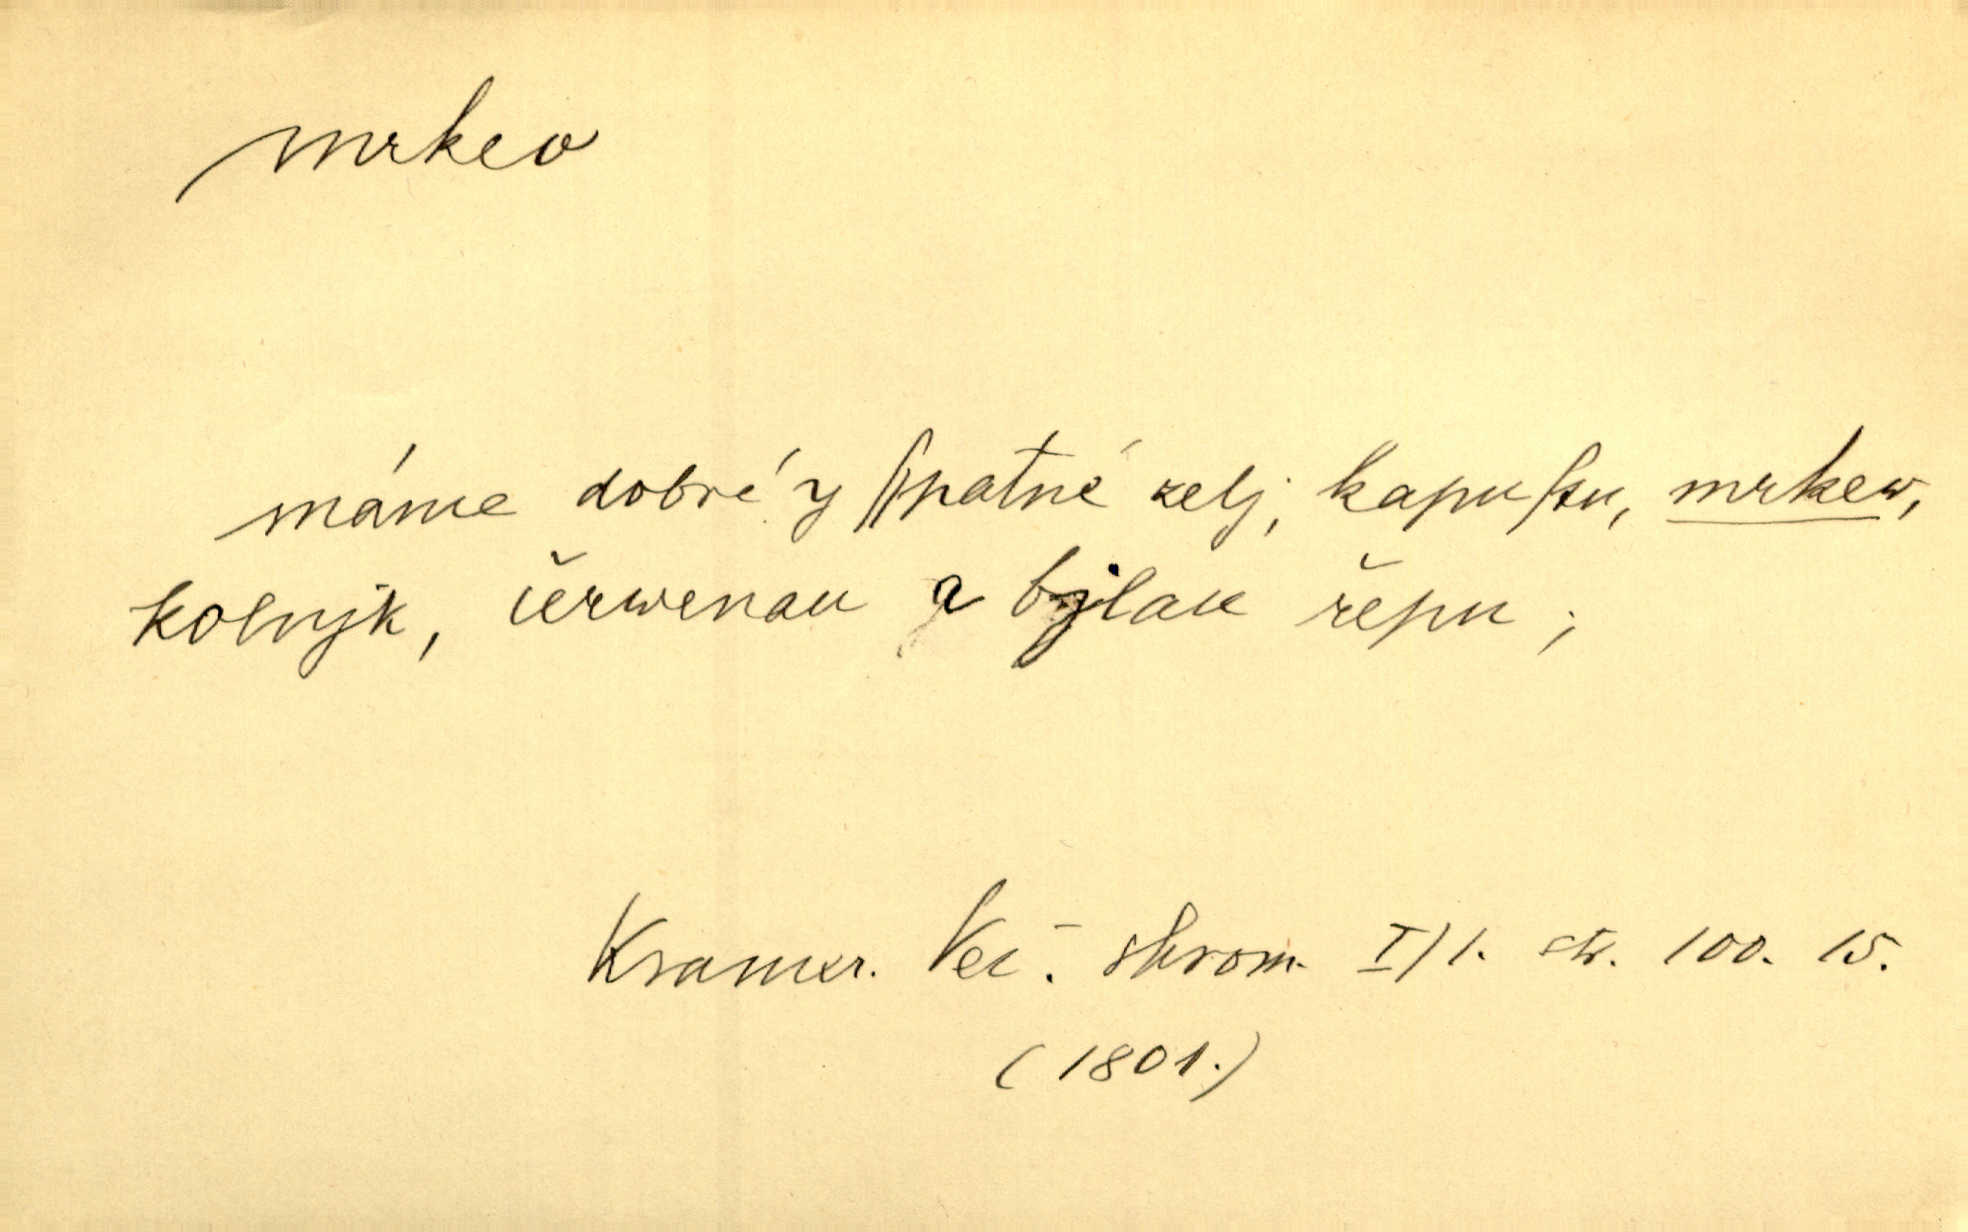 mrkev
máme dobré y ſſpatné zelj, kapuſtu, mrkew,
kolnjk, čerwenau a bjlau řepu ;
Kramer. Več. shrom. I/1. str. 100. 15.
(1801.)